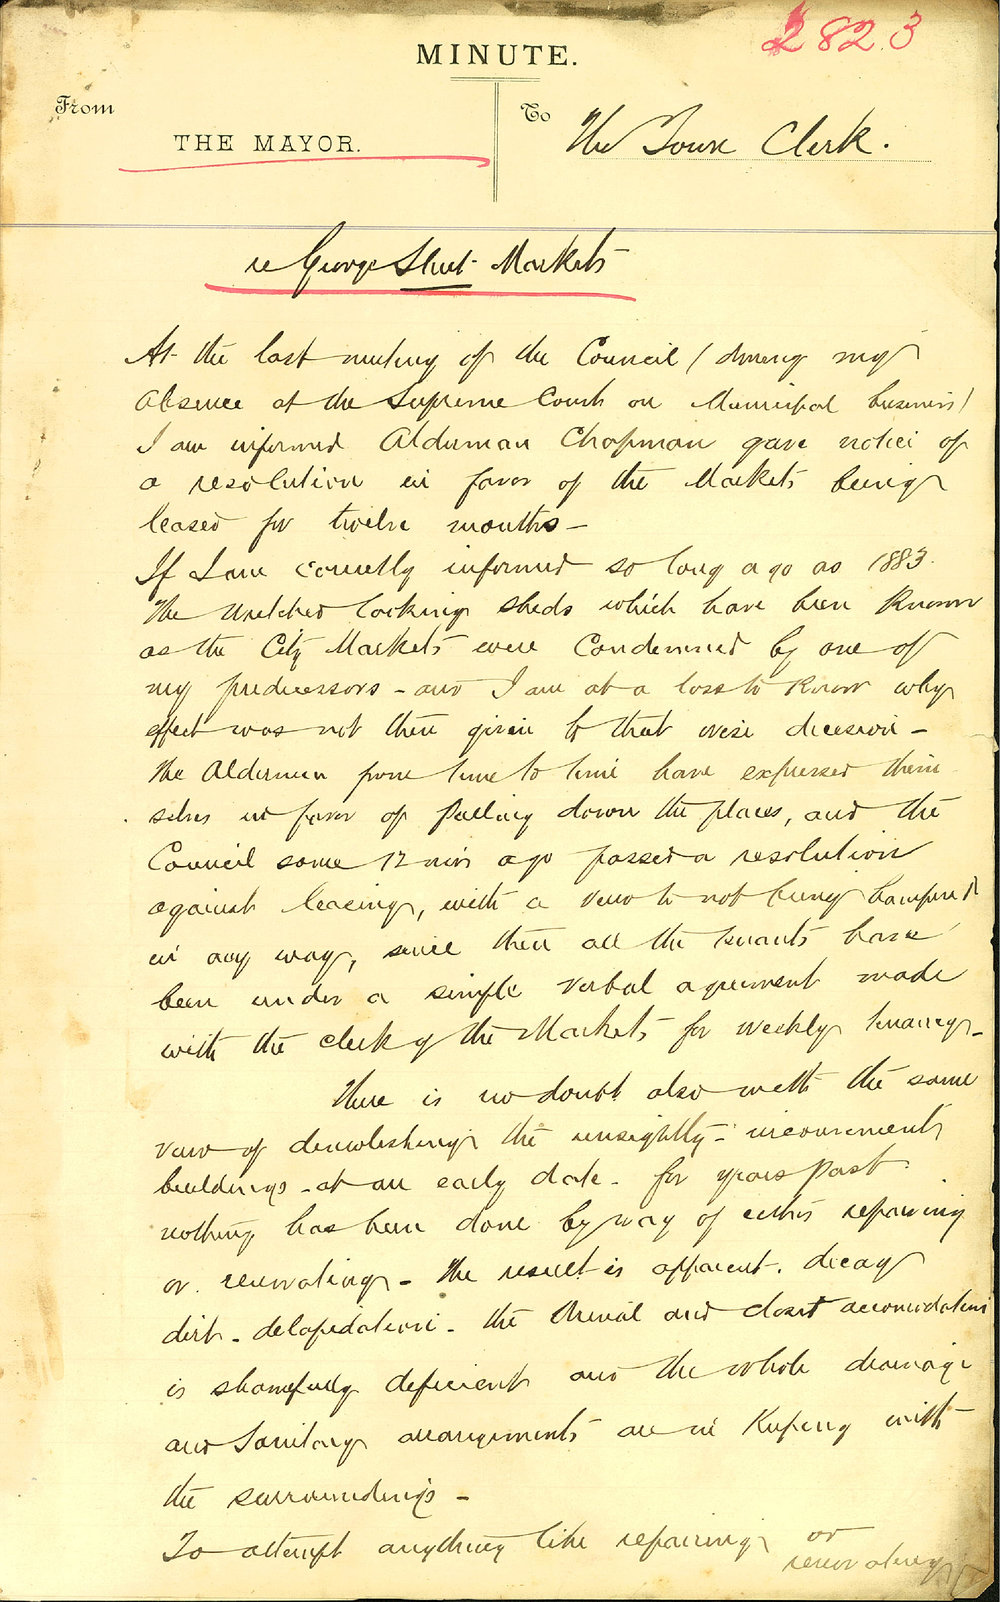 2823
MINUTE.
From
THE MAYOR.
To
The Town Clerk.
re George Street Markets
At the last meeting of the Council (during my
absence at the Supreme Court on Municipal business)
I am informed Alderman Chapman gave notice of
a resolution in favor of the Markets being
leased for twelve months –
If I am correctly informed so long ago as 1883.
the wretched looking sheds which have been known
as the City Markets were condemned by one of
my predecessors – and I am at a loss to know why
effect was not then given to that wise decision –
the Aldermen from time to time have expressed them
selves in favor of pulling down the places, and the
Council some 12 mos ago passed a resolution
against leasing, with a view to not being hampered
in any way, since then all the tenants have
been under a simple verbal agreement made
with the clerk of the Markets for weekly tenancy –
There is no doubt also with the same
view of demolishing the unsightly – inconvenient
buildings – at an early date – for years past
nothing has been done by way of either repairing
or renovating – the result is apparent. decay
dirt – delapidation – the Urinal and closet accomodation
is shamefully deficient and the whole drainage
and Sanitary arrangements are in Keeping with
the surroundings –
To attempt anything like repairing or
renovating